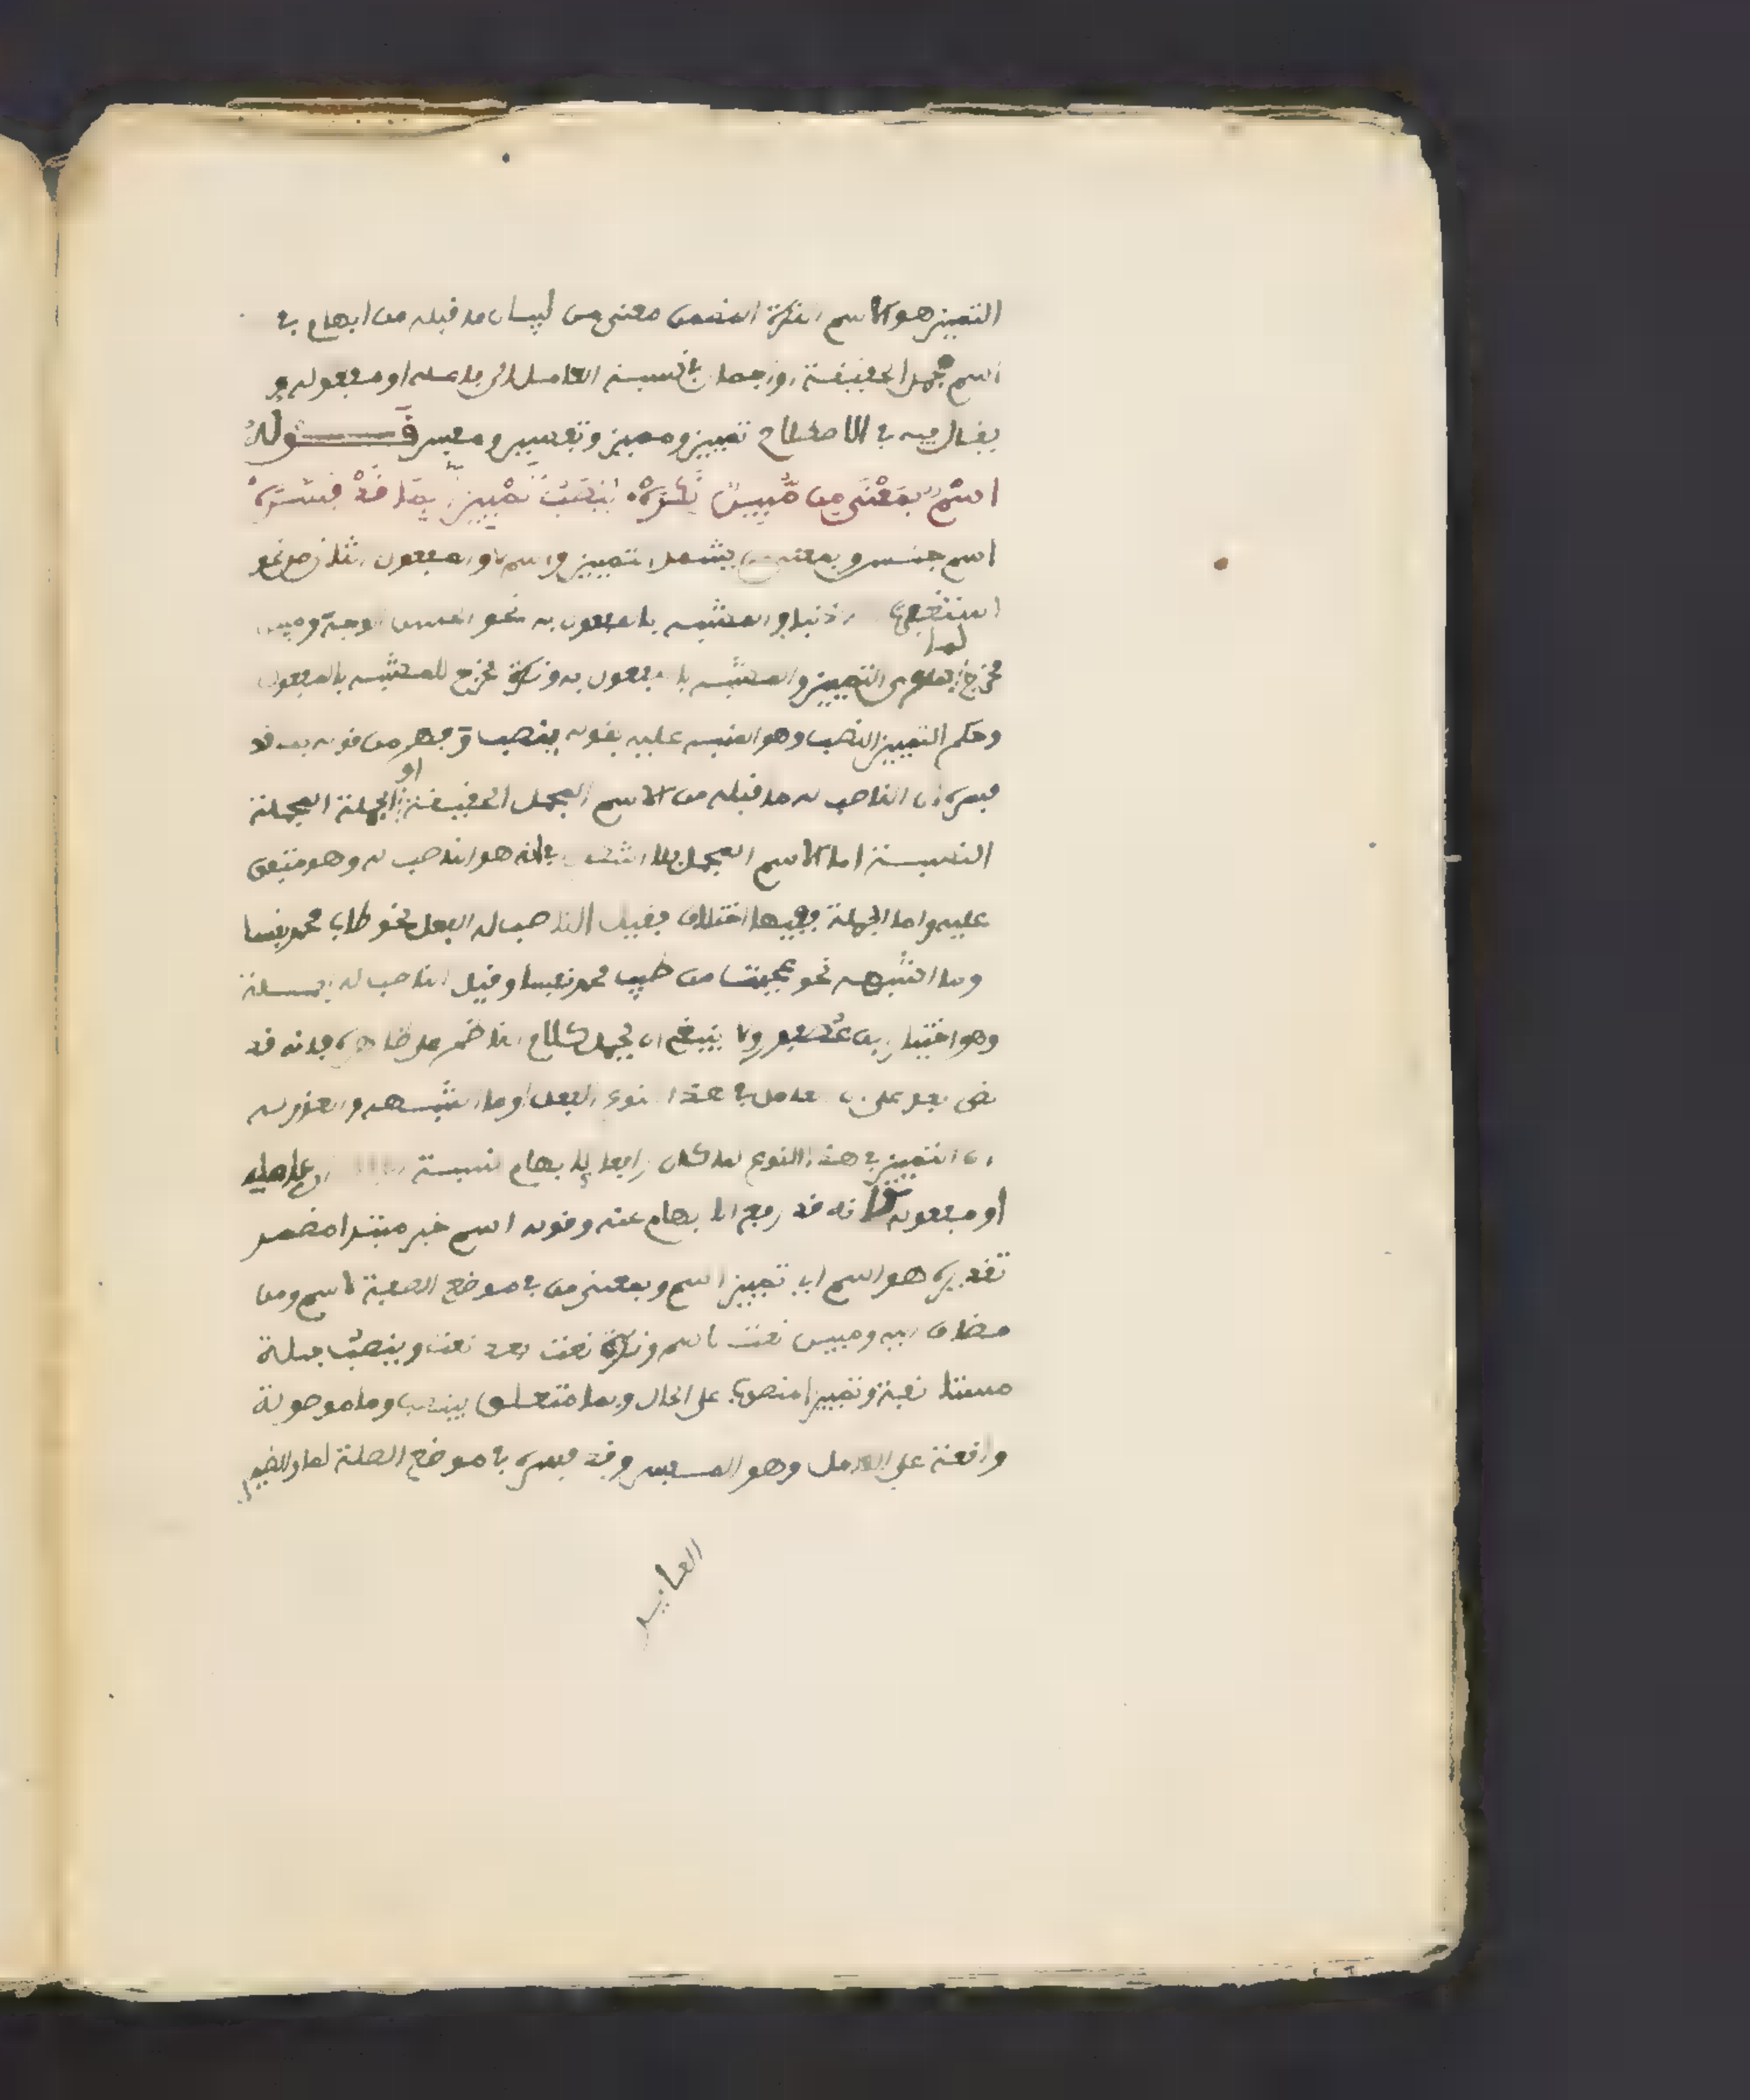 التمييز هو الاسم النكرة المضمن معنى من لبيان ما قبله من ابهام في
اسم مجمل الحقيقة او اجمال في نسبة العامل الى فاعله او مفعوله و
يقال فيه في الاصطلاح تمييز ومميز وتفسير ومفسر قـــوله
اسم بمعنى من مبين نكره ينصب تمييزا بما قد فسره
اسم جنس وبمعنى من يشمل التمييز واسم لا والمفعول الثاني من نحو
استغفر ذنبا والمشبه بالمفعول به نحو الحسن الوجه ومبين
مخرج لما سوى التمييز والمشبه بالمفعول به ونكرة مخرج للمشبه بالمفعول
وحكم التمييز النصب وهو المنبه عليه بقوله ينصب وفهم من قوله بما قد
فسره ان الناصب له ما قبله من الاسم المجمل الحقيقة او الجملة المجملة
النسبة اما الاسم المجمل فلا اشكال في انه هو الناصب له وهو متفق
عليه واما الجملة ففيها اختلاف فقيل الناصب له الفعل نحو طاب محمد نفسا
وما اشبهه نحو عجبت من طيب محمد نفسا وقيل الناصب له الجملة
وهو اختيار ابن عصفور ولا ينبغي ان يحمل كلام الناظم على ظاهره فانه قد
نص بعد على ان العامل في هذا النوع الفعل او ما اشبهه والعذر له
ان التمييز في هذا النوع لما كان رافعا لابهام نسبة الى فاعله
او مفعوله فكانه قد رفع الابهام عنه وقوله اسم خبر مبتدا مضمر
تقديره هو اسم اي تمييز اسم وبمعنى من في موضع الصفة لاسم ومن
مضاف اليه ومبين نعت لاسم ونكرة نعت بعد نعت وينصب جملة
مستانفة وتمييزا منصوب على الحال وبما متعلق بينصب وما موصولة
واقعة على العامل وهو المفسر وقد فسره في موضع الصلة لما والضمير
العايد